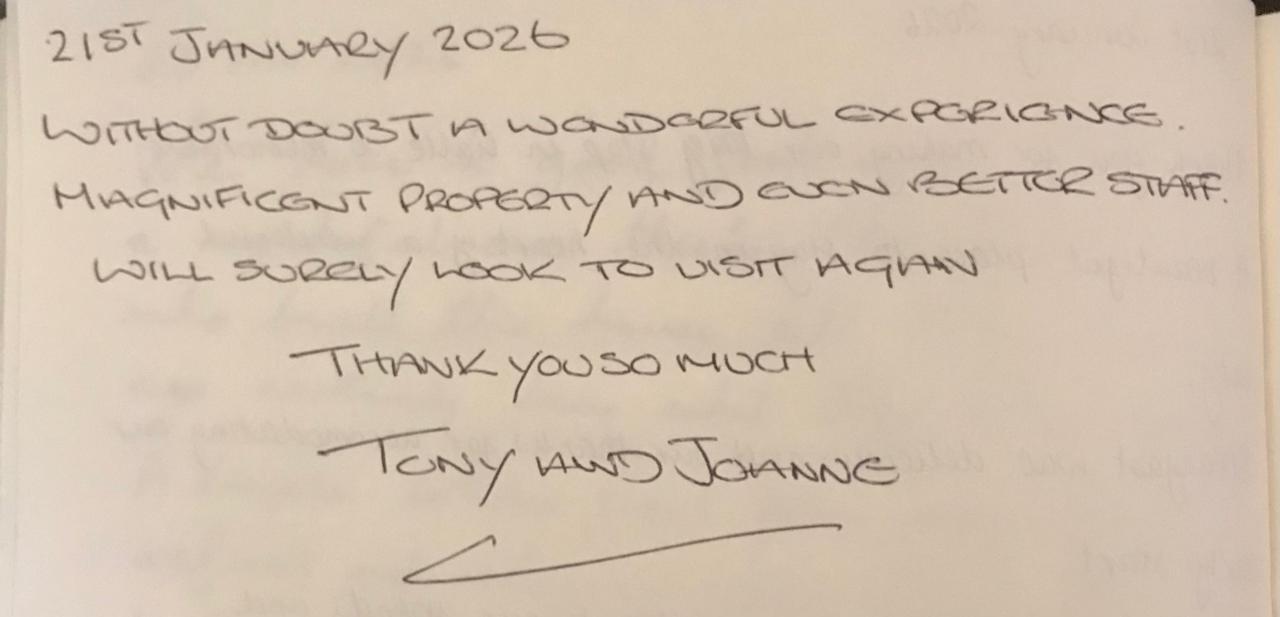 21ST JANUARY 2026
WITHOUT DOUBT A WONDERFUL EXPERIENCE.
MAGNIFICENT PROPERTY AND EVEN BETTER STAFF.
WILL SURELY LOOK TO VISIT AGAIN
THANK YOU SO MUCH
TONY AND JOANNE